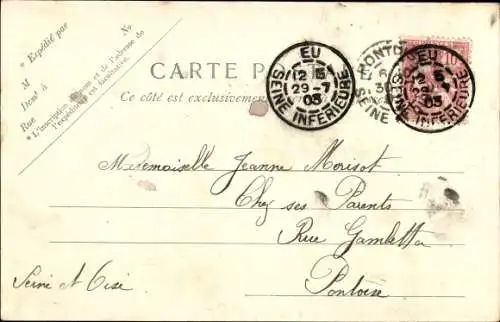 * Expédié par
M
Dem<sup>t</sup> à
Rue
N<sup>o</sup>
* L'inscription du nom et de l'adresse de
l'expéditeur est facultative.
CARTE PO
Ce côté est exclusivement
EU
12 5
29-7
03
SEINE INFERIEURE
PONTO
6
30
SEINE
10
EU
12 5
29-7
03
SEINE INFERIEURE
Mademoiselle Jeanne Morisot
Chez ses Parents
Rue Gambetta
Pontoise
Seine et Oise